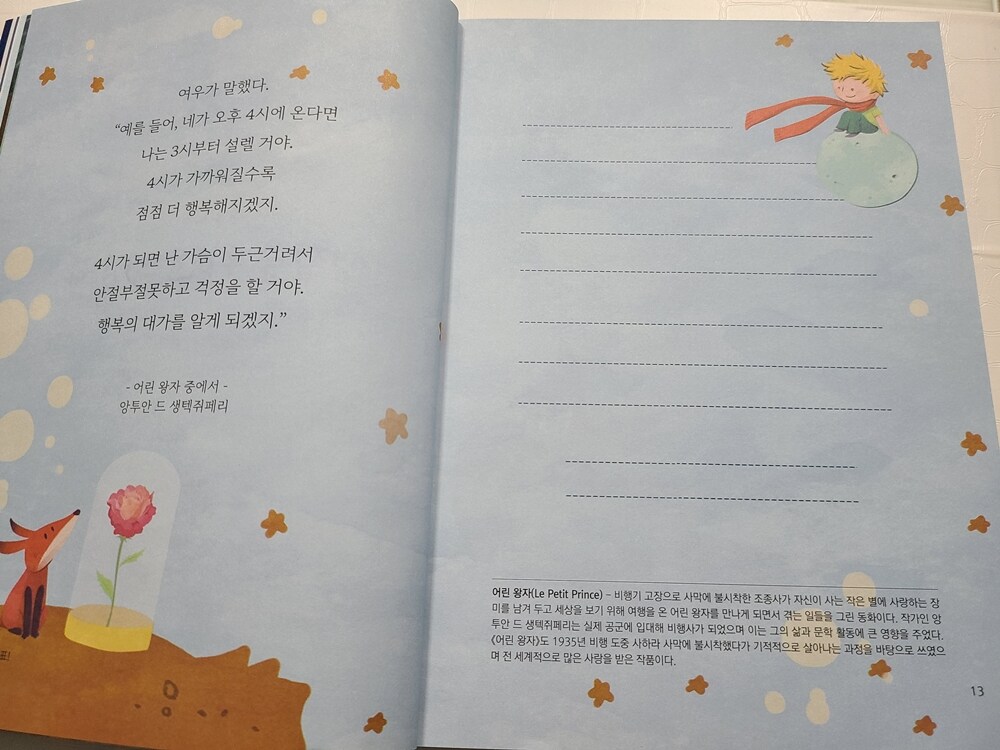 여우가 말했다.
“예를 들어, 네가 오후 4시에 온다면
나는 3시부터 설렐 거야.
4시가 가까워질수록
점점 더 행복해지겠지.
4시가 되면 난 가슴이 두근거려서
안절부절못하고 걱정을 할 거야.
행복의 대가를 알게 되겠지.”
- 어린 왕자 중에서 -
앙투안 드 생텍쥐페리
어린 왕자(Le Petit Prince) – 비행기 고장으로 사막에 불시착한 조종사가 자신이 사는 작은 별에 사랑하는 장
미를 남겨 두고 세상을 보기 위해 여행을 온 어린 왕자를 만나게 되면서 겪는 일들을 그린 동화이다. 작가인 앙
투안 드 생텍쥐페리는 실제 공군에 입대해 비행사가 되었으며 이는 그의 삶과 문학 활동에 큰 영향을 주었다.
《어린 왕자》도 1935년 비행 도중 사하라 사막에 불시착했다가 기적적으로 살아나는 과정을 바탕으로 쓰였으
며 전 세계적으로 많은 사랑을 받은 작품이다.
13